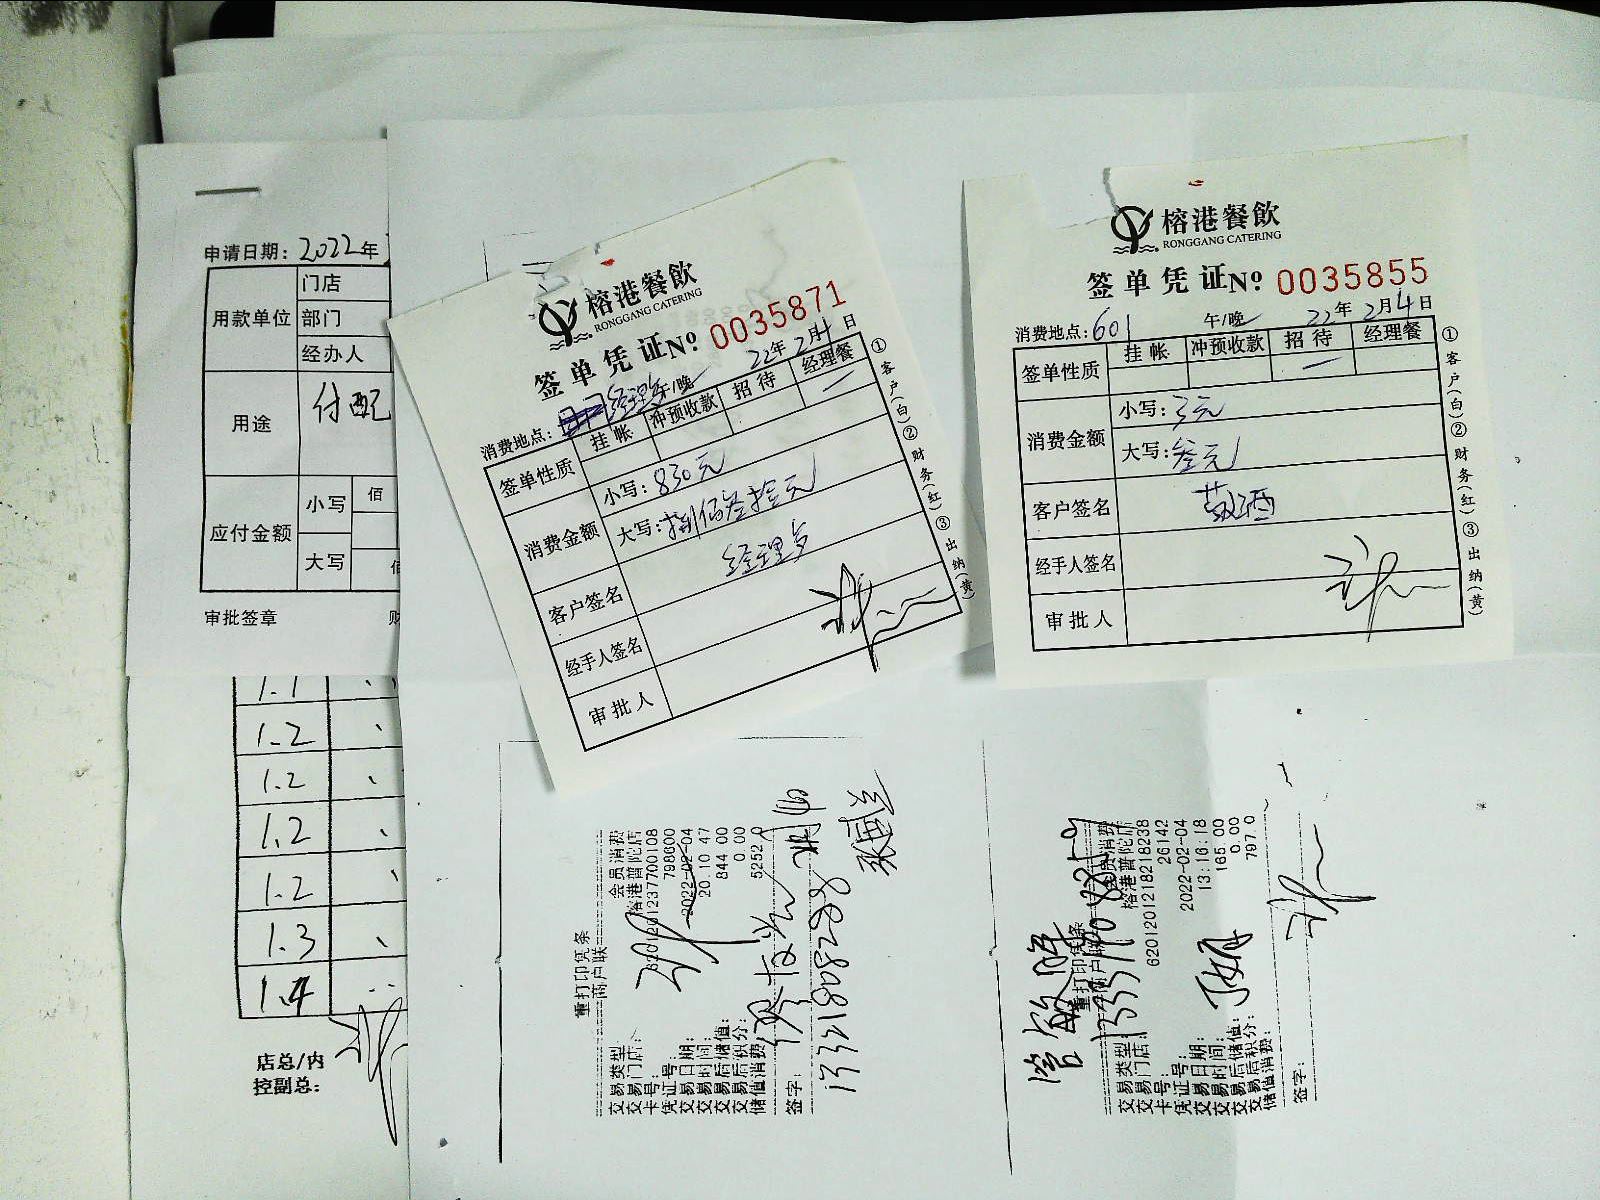 申请日期：2022年
用款单位
门店
部门
经办人
用途
付配
应付金额
小写
佰
大写
审批签章
1.1
1.2
1.2
1.2
1.2
1.3
1.4
店总/内
控副总：
榕港餐飲
RONGGANG CATERING
签单凭证№ 0035871
22年2月4日
消费地点：经理餐 午/晚
签单性质
挂帐 冲预收款 招待 经理餐
消费金额
小写：830元
大写：捌佰叁拾元
客户签名
经理餐
经手人签名
审批人
①客户(白)②财务(红)③出纳(黄)
榕港餐飲
RONGGANG CATERING
签单凭证№ 0035855
消费地点：601 午/晚 22年2月4日
签单性质
挂帐 冲预收款 招待 经理餐
消费金额
小写：3元
大写：叁元
客户签名
敬酒
经手人签名
审批人
①客户(白)②财务(红)③出纳(黄)
重打印凭条
商户联
交易类型： 会员消费
交易门店： 榕港普陀店
卡号： 6201201237700108
凭证号： 798600
交易日期： 2022-02-04
交易时间： 20:10:47
844.00
0.00
5252.0
签字：
13321808288
重打印凭条
商户联
交易类型： 会员消费
交易门店： 榕港普陀店
卡号： 6201201218218238
凭证号： 26142
交易日期： 2022-02-04
交易时间： 13:16:18
165.00
0.00
797.0
签字：